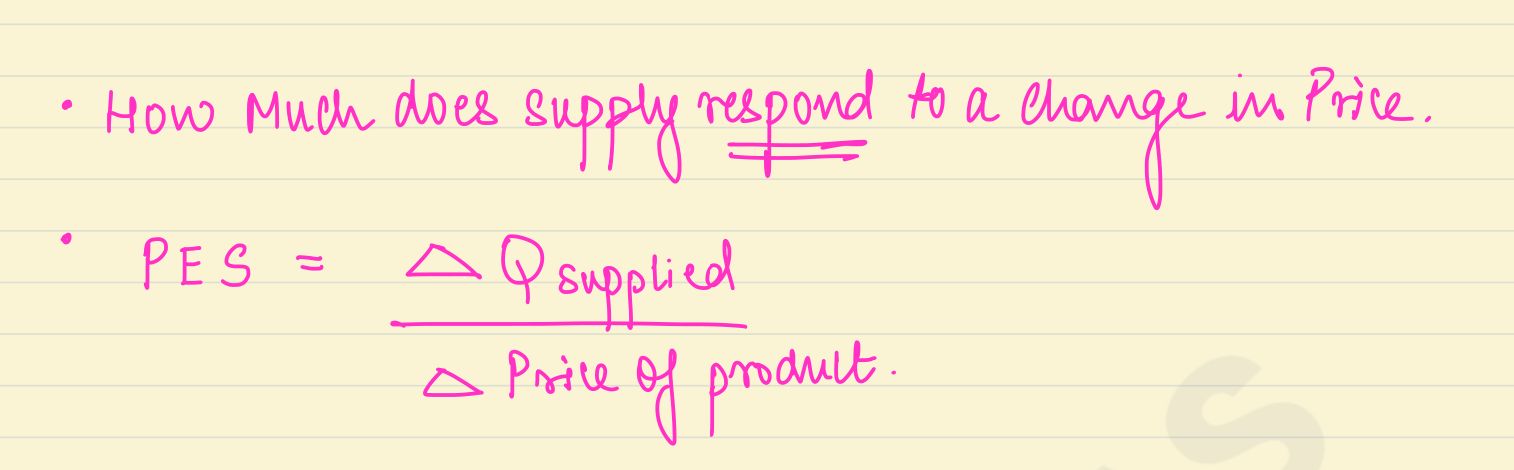 • How Much does supply respond to a change in Price.
• PES = △ Q supplied
△ Price of product.
S